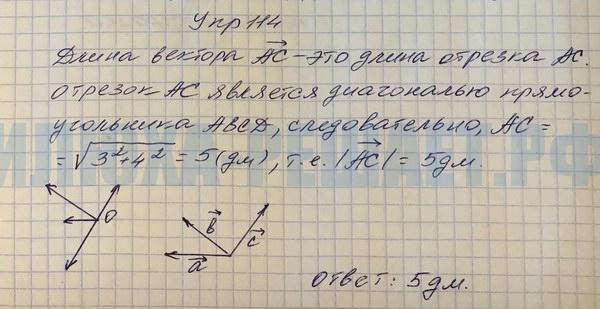 Упр 114
Длина вектора AC – это длина отрезка AC.
отрезок AC является диагональю прямо-
угольника ABCD, следовательно, AC =
= √3²+4² = 5 (дм), т.е. |AC| = 5дм.
O
b
c
a
Ответ: 5дм.